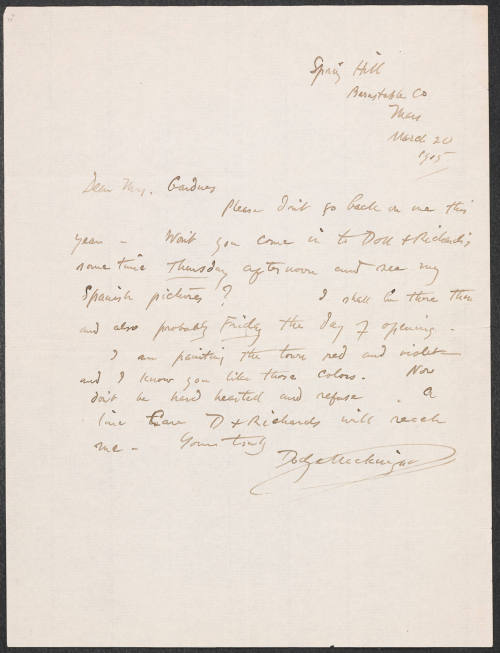 Spring Hill
Barnstable Co
Mass
March 20
1905
Dear Mrs. Gardner
Please don't go back on me this
year – Won't you come in to Doll & Richards
some time Thursday afternoon and see my
Spanish pictures? I shall be there then
and also probably Friday the day of opening.
I am painting the town red and violet
and I know you like those colors. Now
don't be hard hearted and refuse. A
line Care D & Richards will reach
me – Yours truly
Dodge Macknight